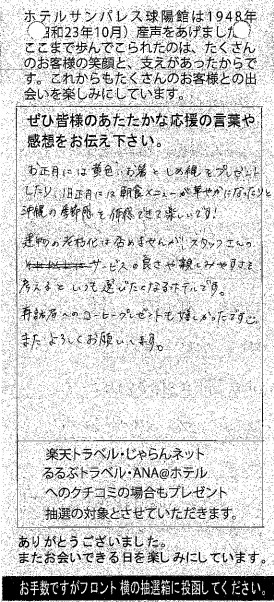 ホテルサンパレス球陽館は1948年
(昭和23年10月)産声をあげました。
ここまで歩んでこられたのは、たくさん
のお客様の笑顔と、支えがあったからで
す。これからもたくさんのお客様との出
会いを楽しみにしています。
ぜひ皆様のあたたかな応援の言葉や
感想をお伝え下さい。
お正月には黄色いお箸としめ縄をプレゼント
したり、旧正月には朝食メニューが華やかになったりと
沖縄の季節感を体感できて楽しいです!
建物の老朽化は否めませんが、スタッフさんの
サービスの良さや親しみやすさを
考えるといつも選びたくなるホテルです。
再訪者へのコーヒープレゼントも嬉しかったです
またよろしくお願いします。
楽天トラベル・じゃらんネット
るるぶトラベル・ANA@ホテル
へのクチコミの場合もプレゼント
抽選の対象とさせていただきます。
ありがとうございました。
またお会いできる日を楽しみにしています。
お手数ですがフロント横の抽選箱に投函してください。